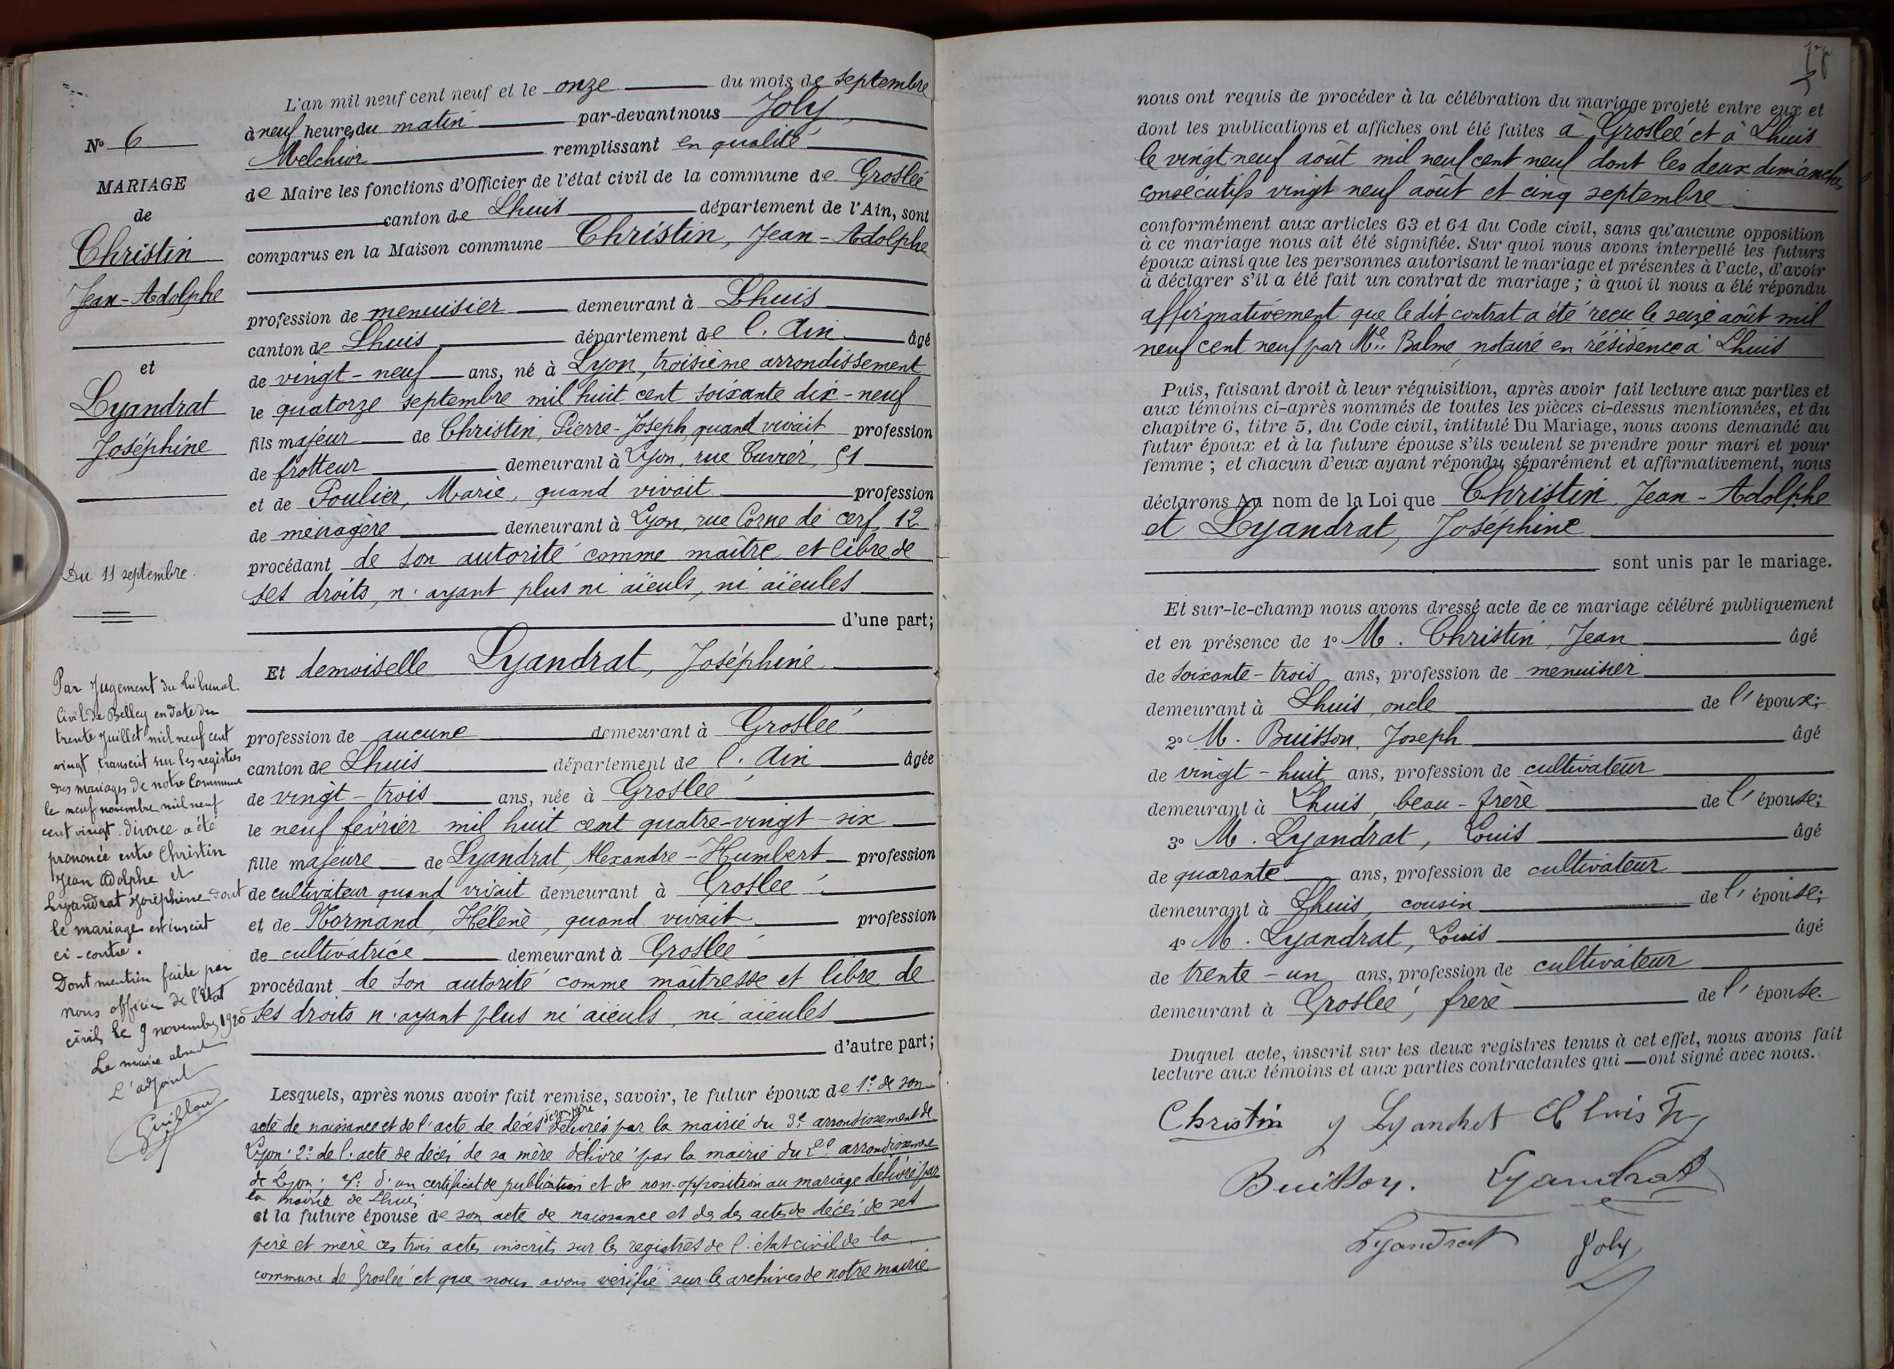 N° 6
MARIAGE
de
Christin
Jean-Adolphe
et
Lyandrat
Joséphine
Du 11 septembre.
Par Jugement du tribunal
Civil de Belley en date du
trente Juillet mil neuf cent
vingt, transcrit sur les registres
des mariages de notre Commune
le neuf novembre mil neuf
cent vingt. divorce a été
prononcé entre Christin
Jean Adolphe et
Lyandrat Joséphine dont
le mariage est inscrit
ci-contre.
Dont mention faite par
nous officier de l'Etat
civil le 9 novembre 1920
Le maire absent
L'adjoint
L'an mil neuf cent neuf et le onze du mois de septembre
à neuf heures du matin par-devant nous Joly
Melchior remplissant en qualité
de Maire les fonctions d'Officier de l'état civil de la commune de Groslée
canton de Lhuis département de l'Ain, sont
comparus en la Maison commune Christin, Jean-Adolphe
profession de menuisier demeurant à Lhuis
canton de Lhuis département de l'Ain âgé
de vingt-neuf ans, né à Lyon, troisième arrondissement
le quatorze septembre mil huit cent soixante dix-neuf
fils majeur de Christin, Pierre-Joseph, quand vivait profession
de frotteur demeurant à Lyon, rue Cuvier, 51
et de Poulier, Marie, quand vivait profession
de ménagère demeurant à Lyon, rue Corne de cerf, 12
procédant de son autorité comme maître et libre de
ses droits, n'ayant plus ni aïeuls, ni aïeules
d'une part;
Et demoiselle Lyandrat, Joséphine
profession de aucune demeurant à Groslée
canton de Lhuis département de l'Ain âgée
de vingt-trois ans, née à Groslée
le neuf février mil huit cent quatre-vingt-six
fille majeure de Lyandrat, Alexandre-Humbert profession
de cultivateur quand vivait demeurant à Groslée
et de Normand, Hélène, quand vivait profession
de cultivatrice demeurant à Groslée
procédant de son autorité comme maîtresse et libre de
ses droits n'ayant plus ni aïeuls, ni aïeules
d'autre part;
Lesquels, après nous avoir fait remise, savoir, le futur époux de 1° de son
acte de naissance et de l'acte de décès de son père délivrés par la mairie du 3e arrondissement de
Lyon; 2° de l'acte de décès de sa mère délivré par la mairie du 2e arrondissement
de Lyon; d'un certificat de publication et de non-opposition au mariage délivré par
la mairie de Lhuis
et la future épouse de son acte de naissance et de des actes de décès de ses
père et mère ces trois actes inscrits sur les registres de l'état civil de la
commune de Groslée et que nous avons vérifié sur les archives de notre mairie
nous ont requis de procéder à la célébration du mariage projeté entre eux et
dont les publications et affiches ont été faites à Groslée et à Lhuis
le vingt neuf août mil neuf cent neuf dont les deux dimanches
consécutifs vingt neuf août et cinq septembre
conformément aux articles 63 et 64 du Code civil, sans qu'aucune opposition
à ce mariage nous ait été signifiée. Sur quoi nous avons interpellé les futurs
époux ainsi que les personnes autorisant le mariage et présentes à l'acte, d'avoir
à déclarer s'il a été fait un contrat de mariage; à quoi il nous a été répondu
affirmativement que le dit contrat a été reçu le seize août mil
neuf cent neuf par Me Balme notaire en résidence à Lhuis
Puis, faisant droit à leur réquisition, après avoir fait lecture aux parties et
aux témoins ci-après nommés de toutes les pièces ci-dessus mentionnées, et du
chapitre 6, titre 5, du Code civil, intitulé Du Mariage, nous avons demandé au
futur époux et à la future épouse s'ils veulent se prendre pour mari et pour
femme; et chacun d'eux ayant répondu séparément et affirmativement, nous
déclarons Au nom de la Loi que Christin Jean-Adolphe
et Lyandrat, Joséphine
sont unis par le mariage.
Et sur-le-champ nous avons dressé acte de ce mariage célébré publiquement
et en présence de 1° M. Christin, Jean âgé
de soixante-trois ans, profession de menuisier
demeurant à Lhuis, oncle de l'époux;
2° M. Buisson, Joseph âgé
de vingt-huit ans, profession de cultivateur
demeurant à Lhuis, beau-frère de l'épouse;
3° M. Lyandrat, Louis âgé
de quarante ans, profession de cultivateur
demeurant à Lhuis, cousin de l'épouse;
4° M. Lyandrat, Louis âgé
de trente-un ans, profession de cultivateur
demeurant à Groslée, frère de l'épouse.
Duquel acte, inscrit sur les deux registres tenus à cet effet, nous avons fait
lecture aux témoins et aux parties contractantes qui ont signé avec nous.
Christin J Lyandrat
Buisson. Lyandrat
Lyandrat Joly